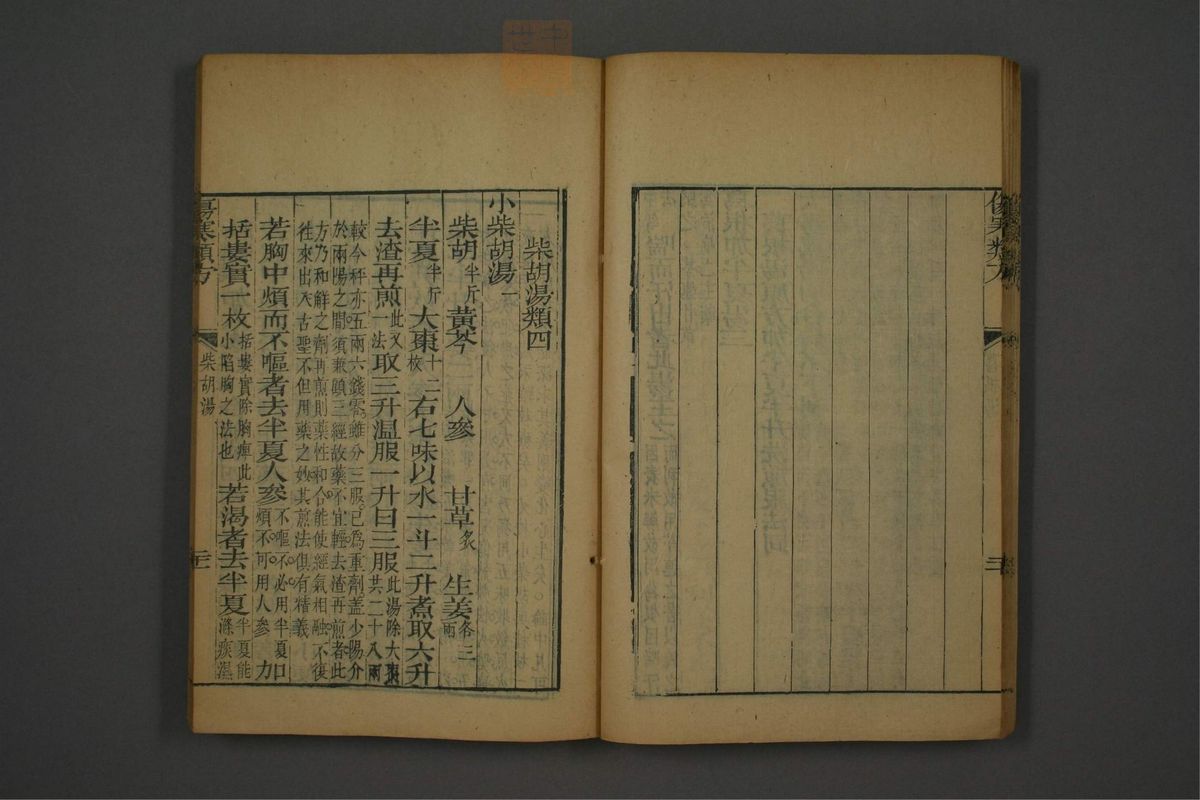 傷寒類方
柴胡湯類四
小柴胡湯一
柴胡半斤 黃芩 人參 甘草炙 生姜各三兩
半夏半斤 大棗十二枚 右七味以水一斗二升煮取六升
去渣再煎此又一法取三升温服一升日三服此湯除大棗共二十八兩
較今秤亦五兩六錢零雖分三服已為重劑蓋少陽介
於兩陽之間須兼顧三經故藥不宜輕去渣再煎者此
方乃和解之劑再煎則藥性和合能使經氣相融不復
往來出入古聖不但用藥之妙其煎法俱有精義
若胸中煩而不嘔者去半夏人參不嘔不必用半夏口煩不可用人參加
括蔞實一枚括蔞實除胸痺此小陷胸之法也若渴者去半夏半夏能滌痰濕
傷寒類方 柴胡湯